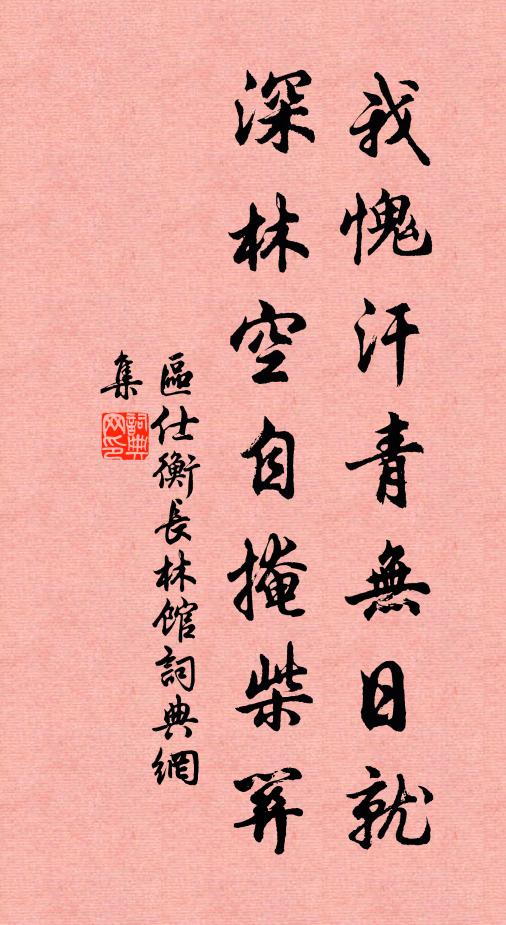 我愧汗青無日就
深林空自掩柴關
區仕衡長林館詞典網
集
詞典網印